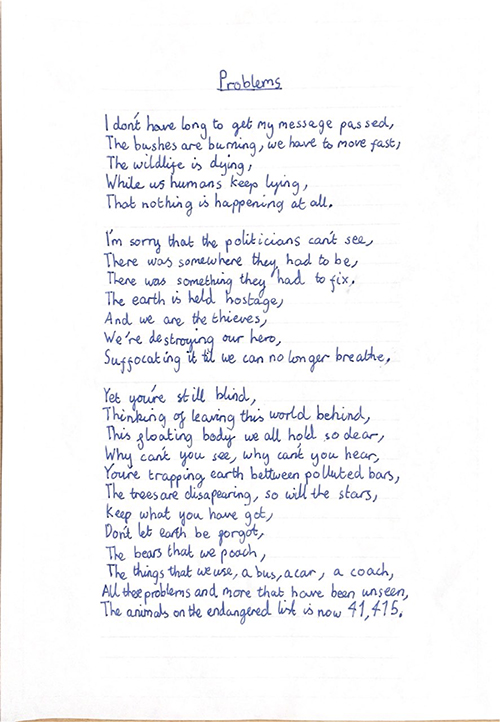 Problems
I don't have long to get my message passed,
The bushes are burning, we have to move fast,
The wildlife is dying,
While us humans keep lying,
That nothing is happening at all.
I'm sorry that the politicians can't see,
There was somewhere they had to be,
There was something they had to fix.
The earth is held hostage,
And we are the thieves,
We're destroying our hero,
Suffocating it til we can no longer breathe.
Yet you're still blind,
Thinking of leaving this world behind,
This floating body we all hold so dear,
Why can't you see, why can't you hear,
You're trapping earth between polluted bars,
The trees are disapearing, so will the stars,
Keep what you have got,
Don't let earth be forgot,
The bears that we poach,
The things that we use, a bus, a car, a coach,
All these problems and more that have been unseen,
The animals on the endangered list is now 41,415.